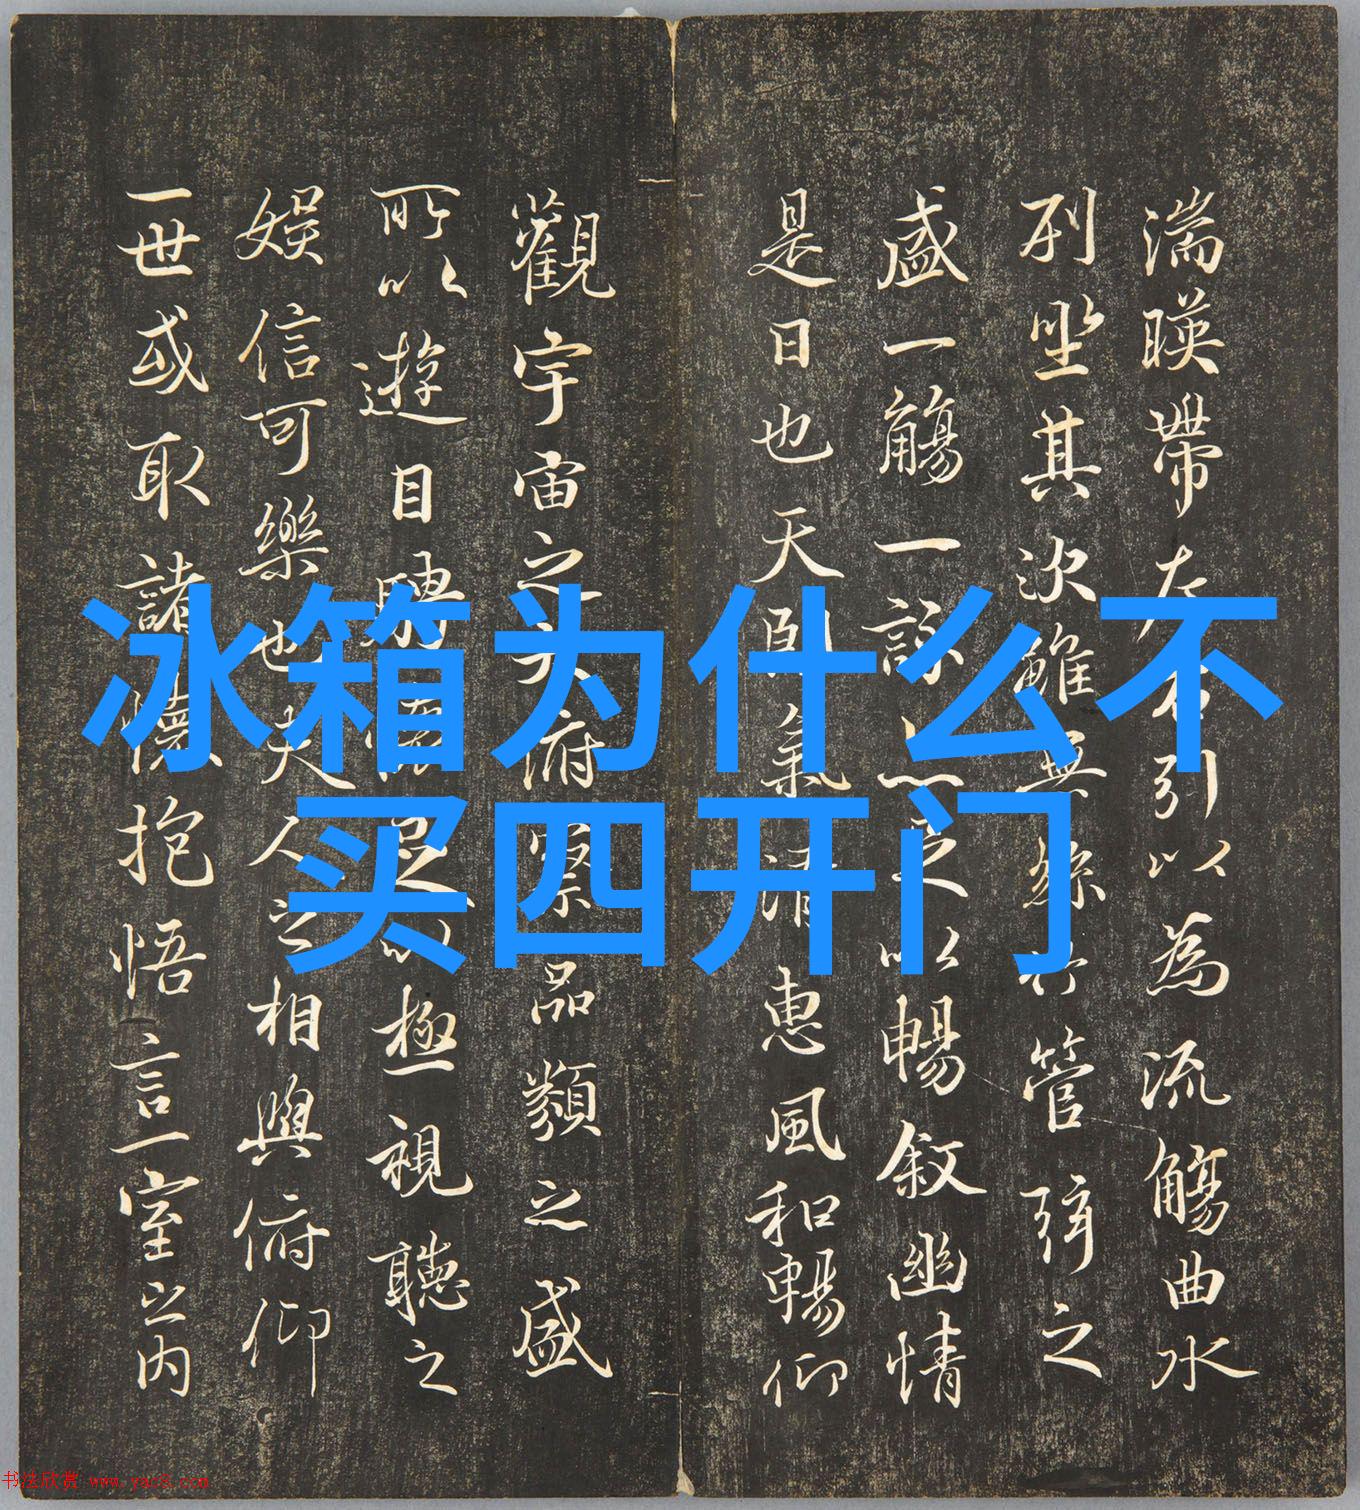 冰箱为什么不
买四开门
湍暎帶左右引以為流觴曲水
列坐其次雖無絲竹管弦之
盛一觴一詠亦足以暢敘幽情
是日也天朗氣清惠風和暢仰
觀宇宙之大俯察品類之盛
所以遊目騁懷足以極視聽之
娛信可樂也夫人之相與俯仰
一世或取諸懷抱悟言一室之内
书法欣赏 www.yac8.com